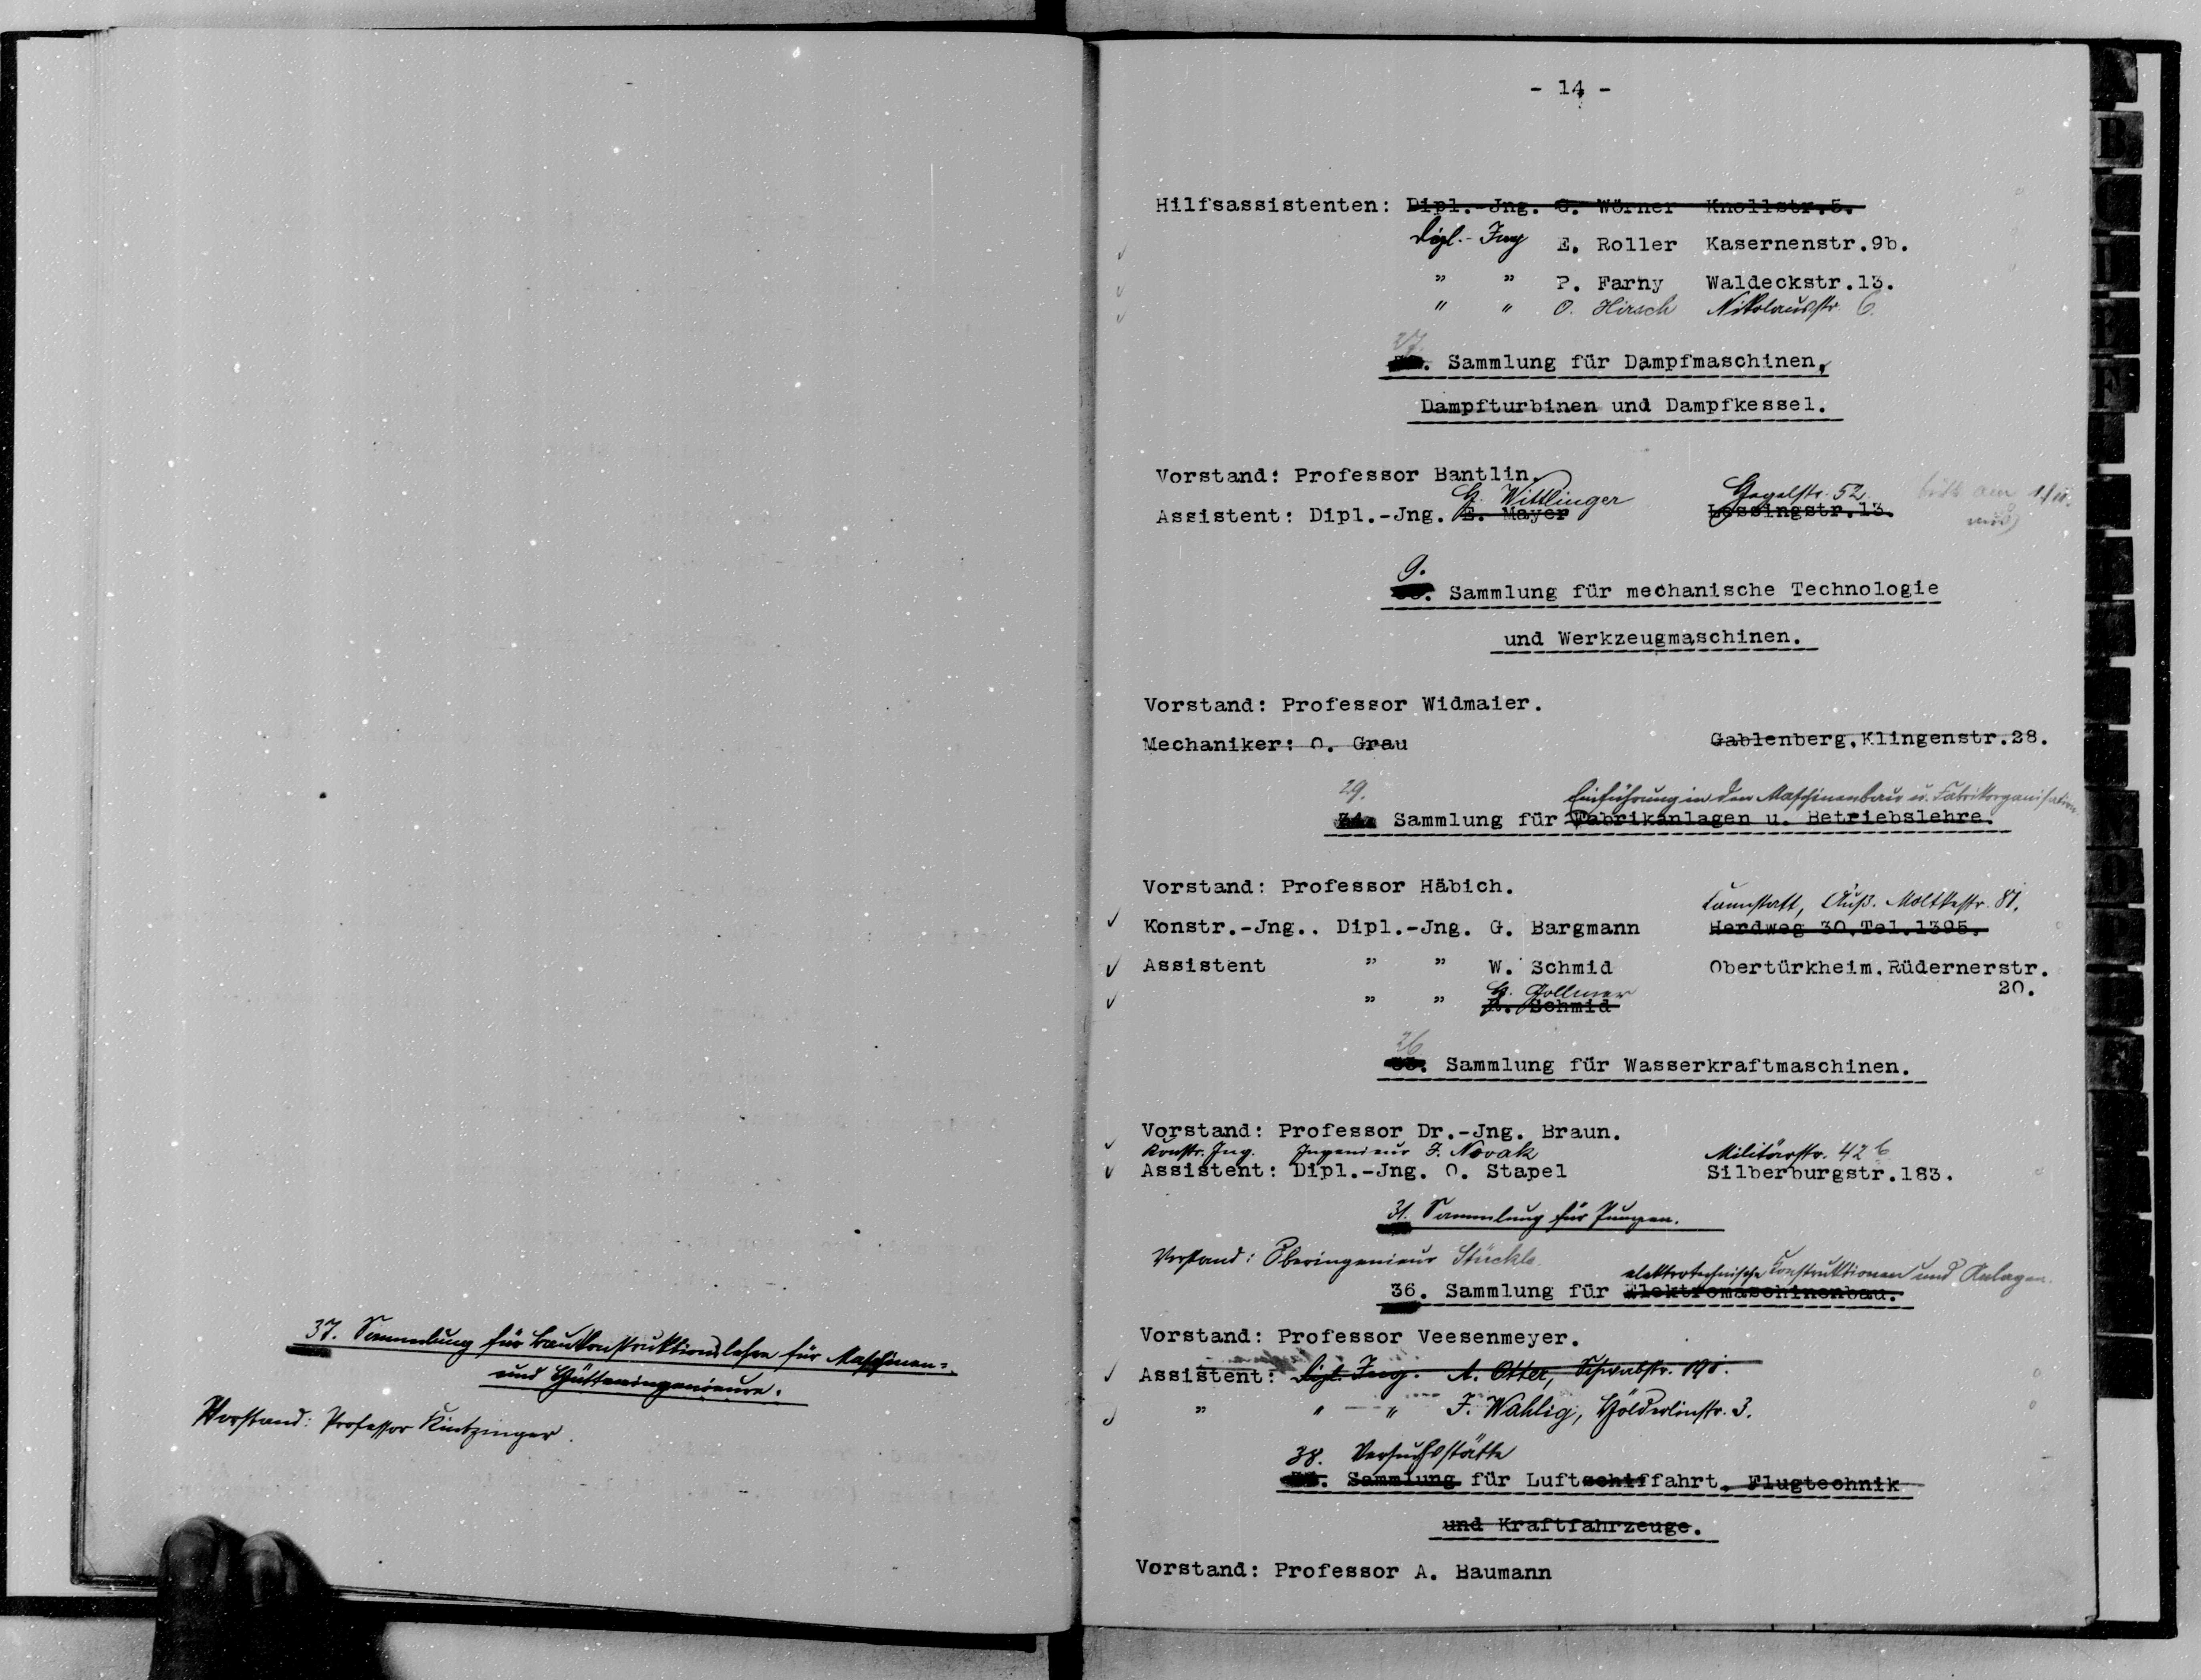 37. Sammlung für Baukonstruktionslehre für Maschinen-
und Hütteningenieure.
Vorstand: Professor Kintzinger.
- 14 -
Hilfsassistenten: Dipl.-Jng. G. Wörner Knollstr.5.
Dipl.-Ing E. Roller Kasernenstr.9b.
" " P. Farny Waldeckstr.13.
" " O. Hirsch Nikolausstr. 6.
27.
Sammlung für Dampfmaschinen,
Dampfturbinen und Dampfkessel.
Vorstand: Professor Bantlin.
G. Wittlinger Hegelstr. 52.
Assistent: Dipl.-Jng. E. Mayer Lessingstr.13.
9.
Sammlung für mechanische Technologie
und Werkzeugmaschinen.
Vorstand: Professor Widmaier.
Mechaniker: O. Grau Gablenberg,Klingenstr.28.
29. Einführung in den Maschinenbau u. Fabrikorganisation
34. Sammlung für Fabrikanlagen u. Betriebslehre.
Vorstand: Professor Häbich.
Cannstatt, Äuß. Moltkestr. 81.
Konstr.-Jng.. Dipl.-Jng. G. Bargmann Herdweg 30.Tel.1395.
Assistent " " W. Schmid Obertürkheim.Rüdernerstr.
20.
G. Gollmer
" " R. Schmid
26
35. Sammlung für Wasserkraftmaschinen.
Vorstand: Professor Dr.-Jng. Braun.
Konstr. Ing. Ingenieur J. Novak Militärstr. 42 b
Assistent: Dipl.-Jng. O. Stapel Silberburgstr.183.
31. Sammlung für Pumpen.
Vorstand: Oberingenieur Stückle.
elektrotechnische Konstruktionen und Anlagen.
36. Sammlung für Elektromaschinenbau.
Vorstand: Professor Veesenmeyer.
Assistent: Dipl. Ing. A. Otter, Schwabstr. 191.
" " " J. Wahlig, Hölderlinstr. 3.
38. Versuchsstätte
Sammlung für Luftschiffahrt, Flugtechnik
und Kraftfahrzeuge.
Vorstand: Professor A. Baumann
B
C
D
E
F
N
O
P